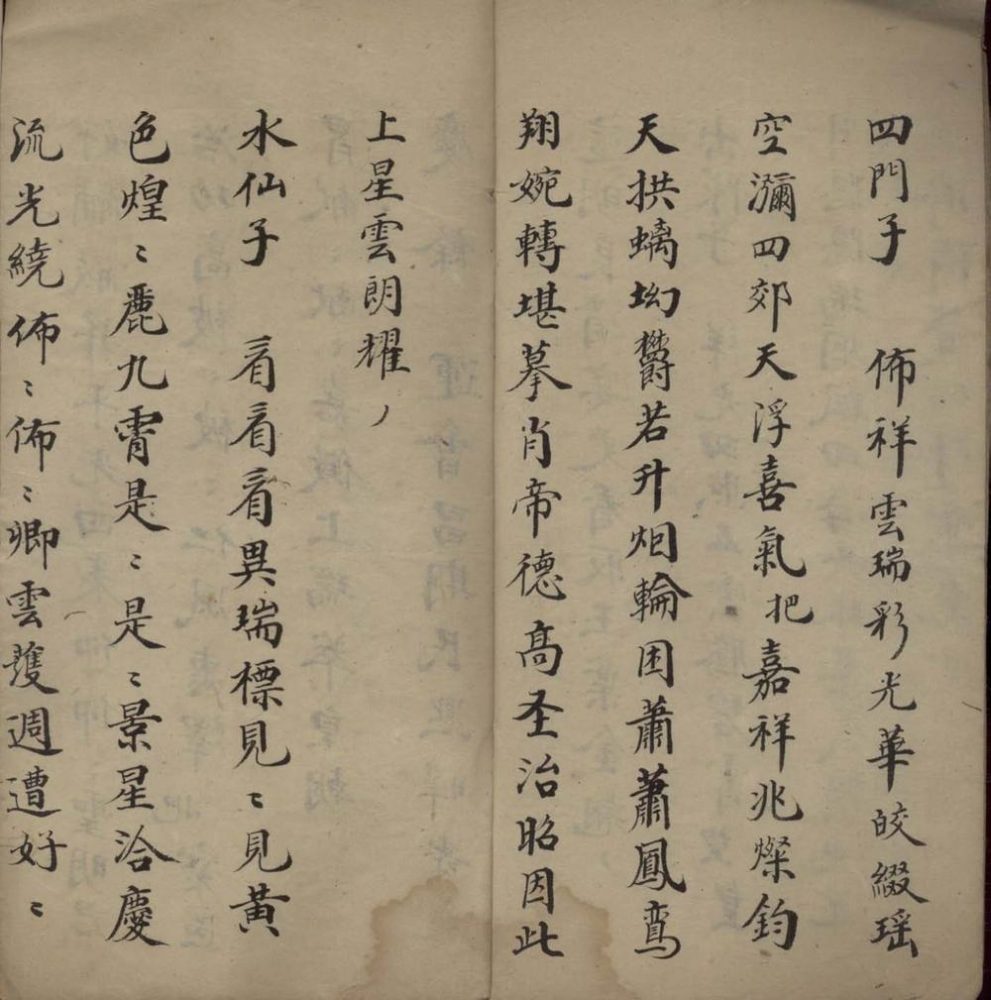 四門子 佈祥雲瑞彩光華皎綴瑶
空瀰四郊天浮喜氣把嘉祥兆燦鈞
天拱螭坳欝若升烟輪囷蕭蕭鳳鸾
翔婉轉堪摹肖帝德高圣治昭因此
上星雲朗耀，
水仙子 看看看異瑞標見〻見黃
色煌〻麗九霄是〻是〻景星洽慶
流光繞佈〻佈〻卿雲護週遭好〻